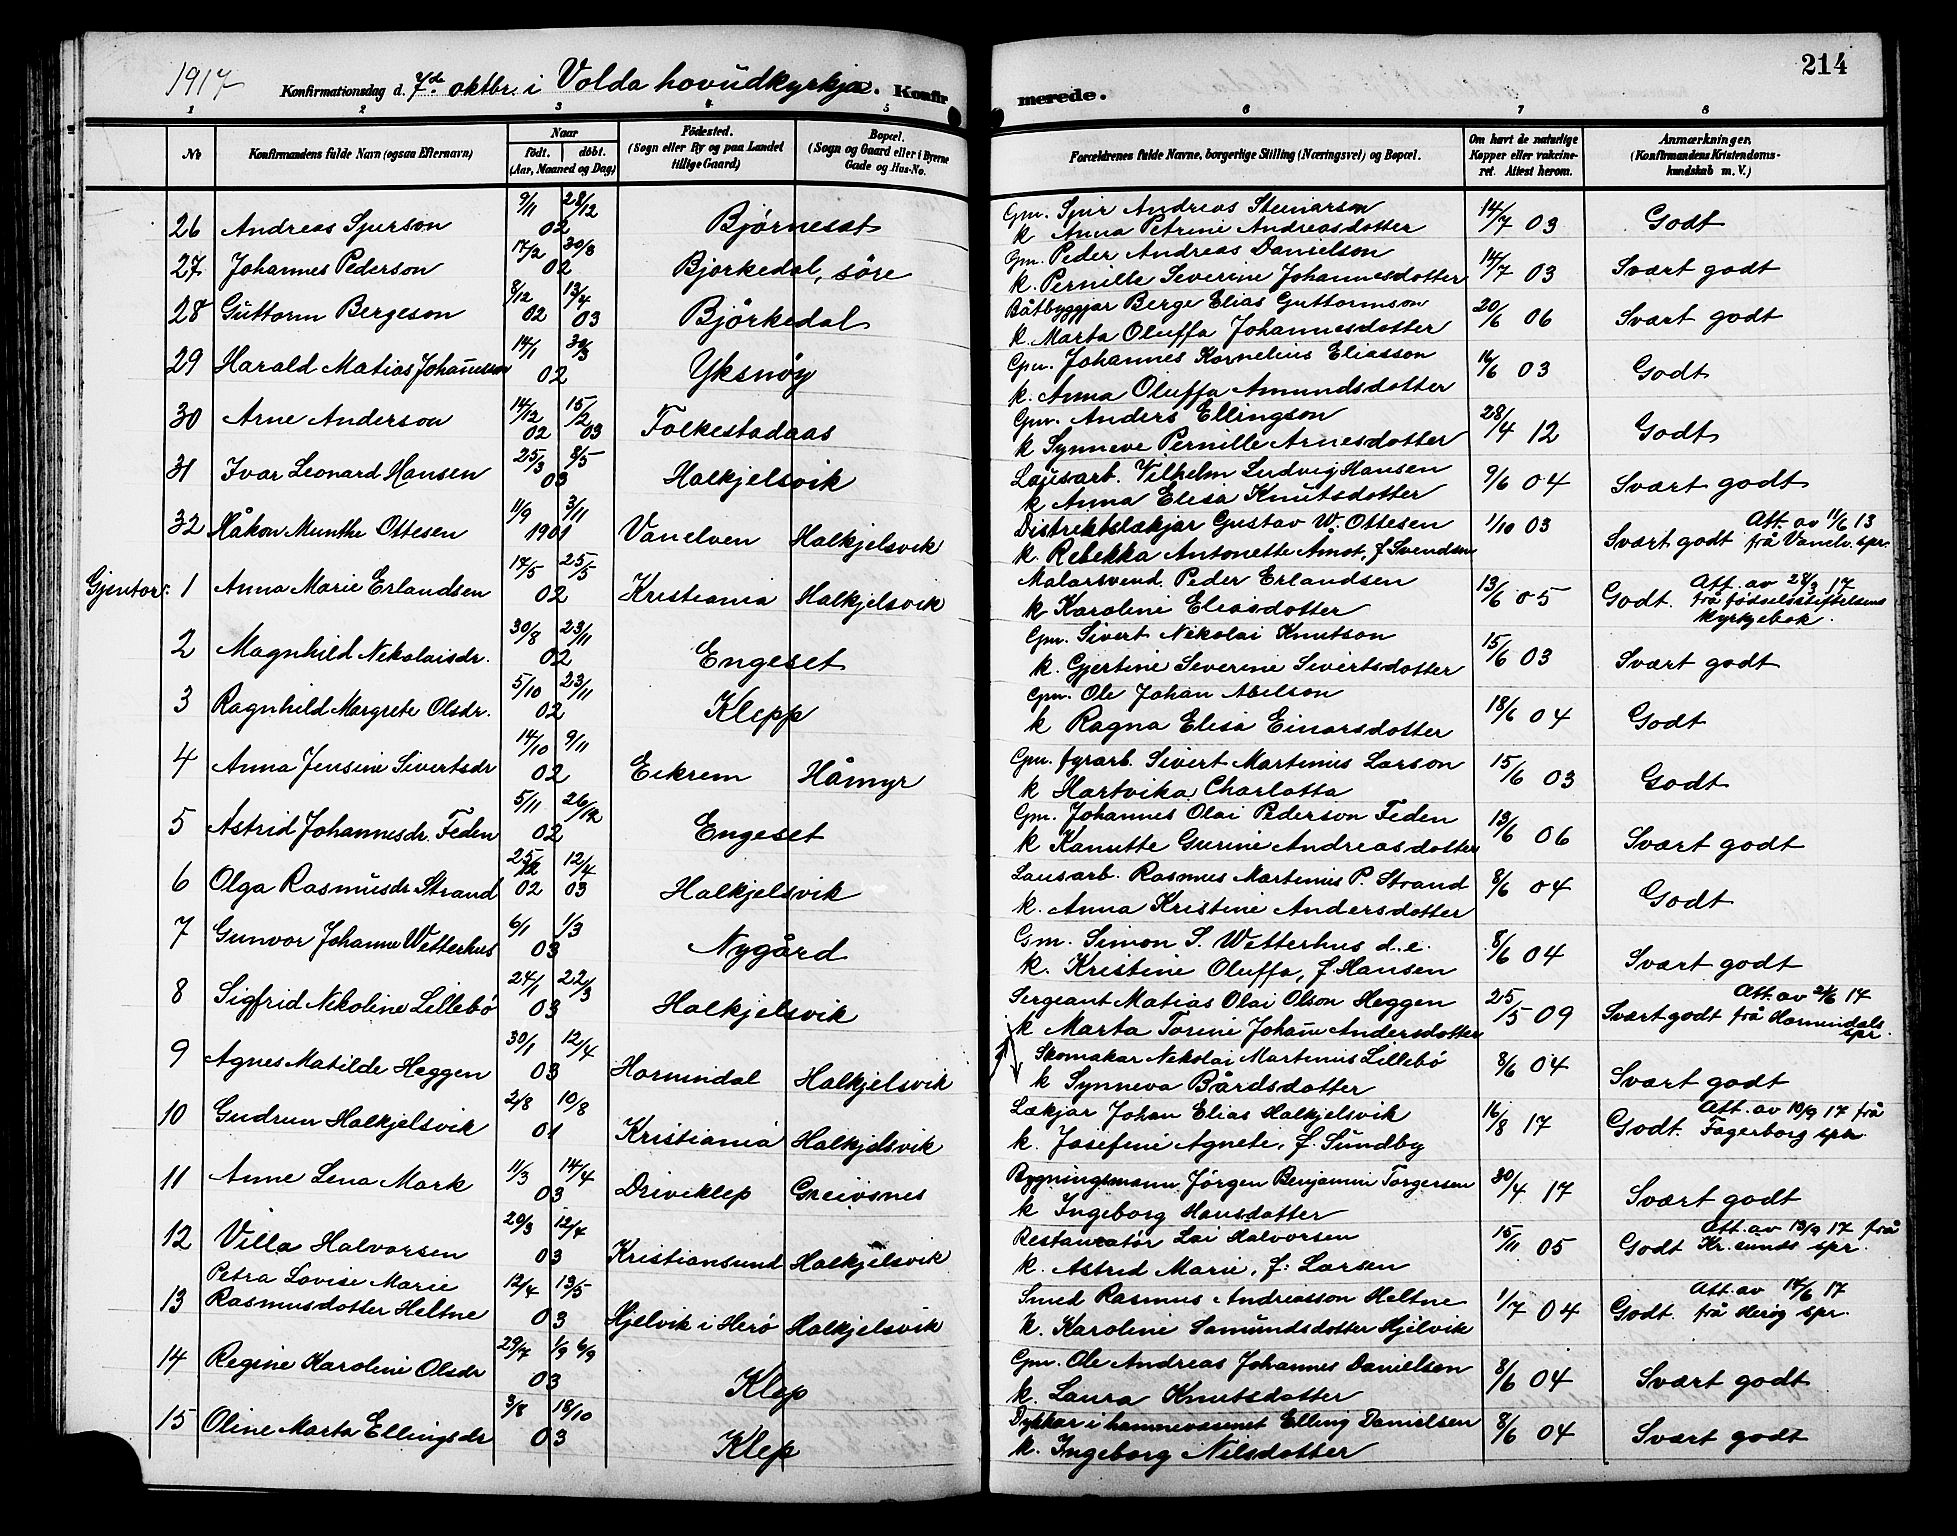 214
1917 Konfirmationsdag d. 7de oktbr. i Volda hovudkyrkja. Konfirmerede.
1 2 3 4 5 6 7 8
No Konfirmandens fulde Navn (ogsaa Efternavn) Naar født. døbt. (Aar, Maaned og Dag) Fødested. (Sogn eller By og paa Landet tillige Gaard) Bopæl. (Sogn og Gaard eller i Byerne Gade og Hus-No. Forældrenes fulde Navne, borgerlige Stilling (Næringsvei) og Bopæl. Om havt de naturlige Kopper eller vakcineret. Attest herom. Anmærkninger. (Konfirmandens Kristendomskundskab m. V.)
26 Andreas Spirson 9/11 28/12 02 Bjørneset Gm. Spir Andreas Steinarson k Anna Petrine Andreasdotter 14/7 03 Godt
27 Johannes Pederson 17/2 30/3 02 Bjorkedal, søre Gm. Peder Andreas Danielson k. Pernille Severine Johannesdotter 14/7 03 Svært godt
28 Guttorm Bergeson 8/12 02 13/4 03 Bjørkedal Båtbyggjar Berge Elias Guttormson k. Marta Oluffa Johannesdotter 20/6 06 Svært godt
29 Harald Matias Johannesson 14/1 30/3 02 Yksnøy Gm. Johannes Kornelius Eliasson k. Anna Oluffa Amundsdotter 16/6 03 Godt
30 Arne Anderson 14/12 02 15/2 03 Folkestadaas Gm. Anders Ellingson k Synneve Pernille Arnesdotter 28/4 12 Godt
31 Ivar Leonard Hansen 25/3 8/5 03 Halkjelsvik Lausarb. Vilhelm Ludvig Hansen k Anna Elisa Knutsdotter 9/6 04 Svært godt
32 Håkon Munthe Ottesen 11/9 3/11 1901 Vanelven Halkjelsvik Distriktslækjar Gustav W. Ottesen k. Rebekka Antonette Amot, f. Svendsen 1/10 03 Svært godt Att. av 11/6 13 frå Vanelv. spr.
Gjentor: 1 Anna Marie Erlandsen 14/5 25/5 02 Kristiania Halkjelsvik Malarsvend Peder Erlandsen k Karoline Eliasdotter 13/6 05 Godt. Att. av 28/9 17 frå fødselsstiftelsens kyrkjebok.
2 Magnhild Nikolaisdr. 30/8 23/11 02 Engeset Gm. Sivert Nikolai Knutson k. Gjertine Severine Sivertsdotter 15/6 03 Svært godt
3 Ragnhild Margrete Olsdr. 5/10 23/11 02 Klepp Gm. Ole Johan Abelson k Ragna Elisa Einarsdotter 18/6 04 Godt
4 Anna Jensine Sivertsdr 14/10 9/11 02 Eikrem Håmyr Gm. fyrarb. Sivert Martinus Larson k Hartvika Charlotta 15/6 03 Godt
5 Astrid Johannesdr. Feden 5/11 26/12 02 Engeset Gm. Johannes Olai Pederson Feden k Kanutte Gurine Andreasdotter 13/6 06 Svært godt
6 Olga Rasmusdr Strand 25/12 02 12/4 03 Halkjelsvik Lausarb. Rasmus Martinus P. Strand k. Anna Kristine Andersdotter 8/6 04 Godt
7 Gunvor Johanne Wetterhus 6/1 1/3 03 Nygård Gm. Simon S. Wetterhus d.e. k. Kristine Oluffa, f. Hansen 8/6 04 Svært godt
8 Sigfrid Nikoline Lillebø 24/1 22/3 03 Halkjelsvik Sergeant Matias Olai Olson Heggen k Marta Torine Johanne Andersdotter 25/5 09 Svært godt Att. av 24/6 17 frå Hornindals spr.
9 Agnes Matilde Heggen 30/1 12/4 03 Hornindal Halkjelsvik Skomakar Nikolai Martinus Lillebø k Synneva Bårdsdotter 8/6 04 Svært godt
10 Gudrun Halkjelsvik 2/8 10/8 01 Kristiania Halkjelsvik Lækjar Johan Elias Halkjelsvik k. Josefine Agnete, f. Sundby 16/8 17 Godt. Att. av 10/9 17 frå Fagerborg spr.
11 Anne Lena Mork 11/3 14/4 03 Driveklep Greivsnes Bygningsmann Jørgen Benjamin Torgersen k Ingeborg Hansdotter 30/4 17 Svært godt
12 Villa Halvorsen 20/3 12/4 03 Kristiansund Halkjelsvik Restauratør Lai Halvorsen k. Astrid Marie, f. Larsen 15/11 05 Godt Att. av 13/9 17 frå Kr.sunds spr.
13 Petra Lovise Marie Rasmusdotter Heltne 12/4 13/5 03 Hjelvik i Herø Halkjelsvik Smed Rasmus Andreasson Heltne k. Karoline Samundsdotter Hjelvik 1/7 04 Godt. Att. av 14/6 17 frå Herøy spr.
14 Regine Karoline Olsdr 29/7 1/9 6/9 03 Klep Gm. Ole Andreas Johannes Danielsen k. Laura Knutsdotter 8/6 04 Svært godt
15 Oline Marta Ellingsdr 3/8 18/10 03 Klep Dykkar i hamnevæsenet Elling Danielsen k. Ingeborg Nilsdotter 8/6 04 Svært godt